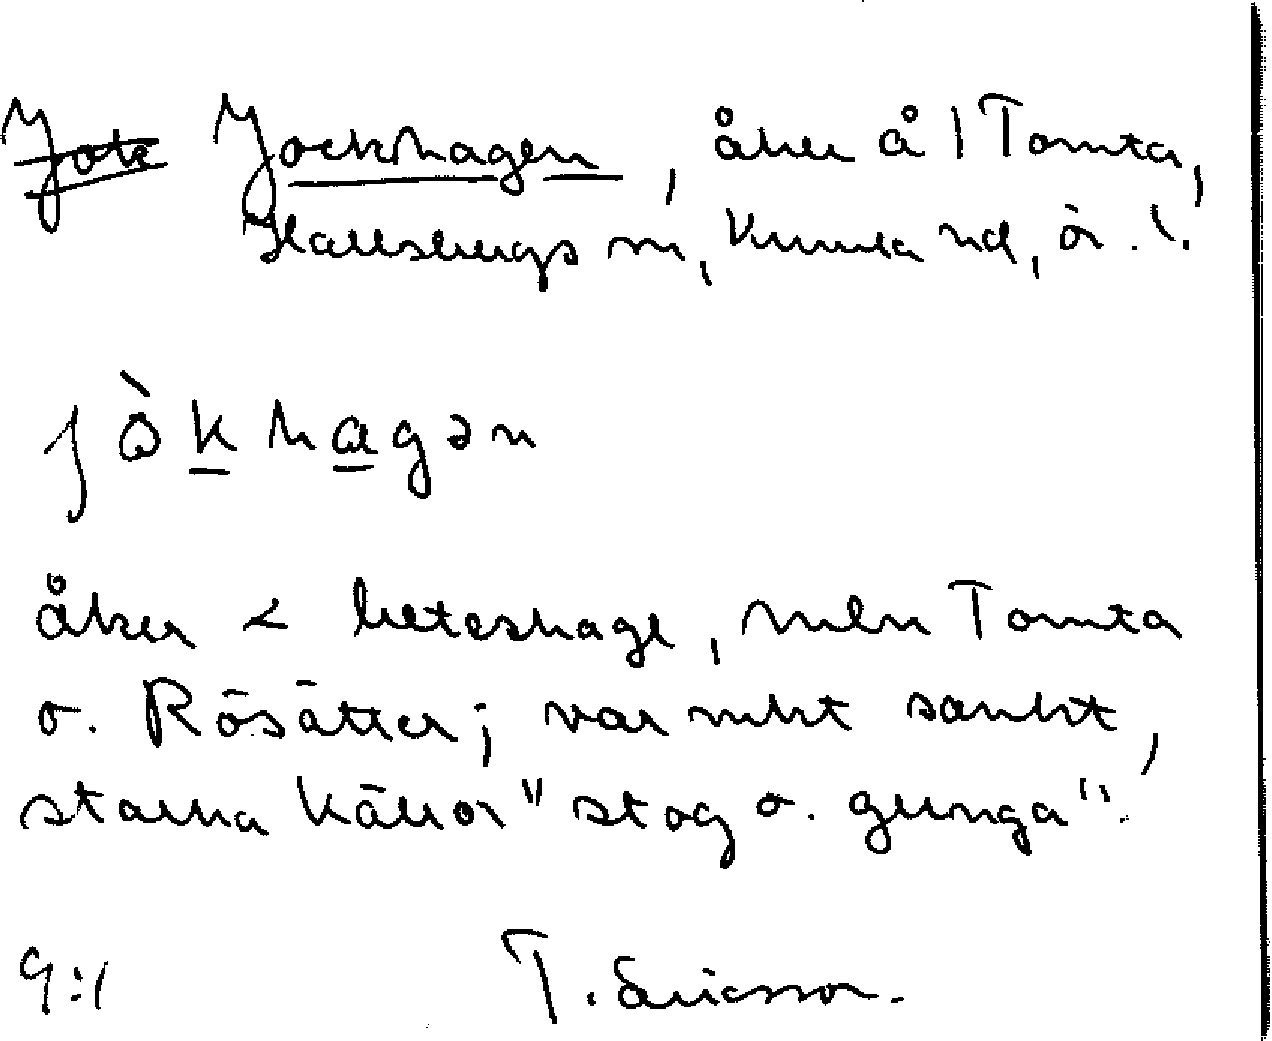 Jockhagen, åker å 1 Tomta,
Hallsbergs sn, Kumla hd, ör. l.
jòkhagən
åker < beteshage, mln Tomta
o. Rösätter; var mkt sankt,
starka källor "stog o. gunga".
9:1 T. Ericsson.